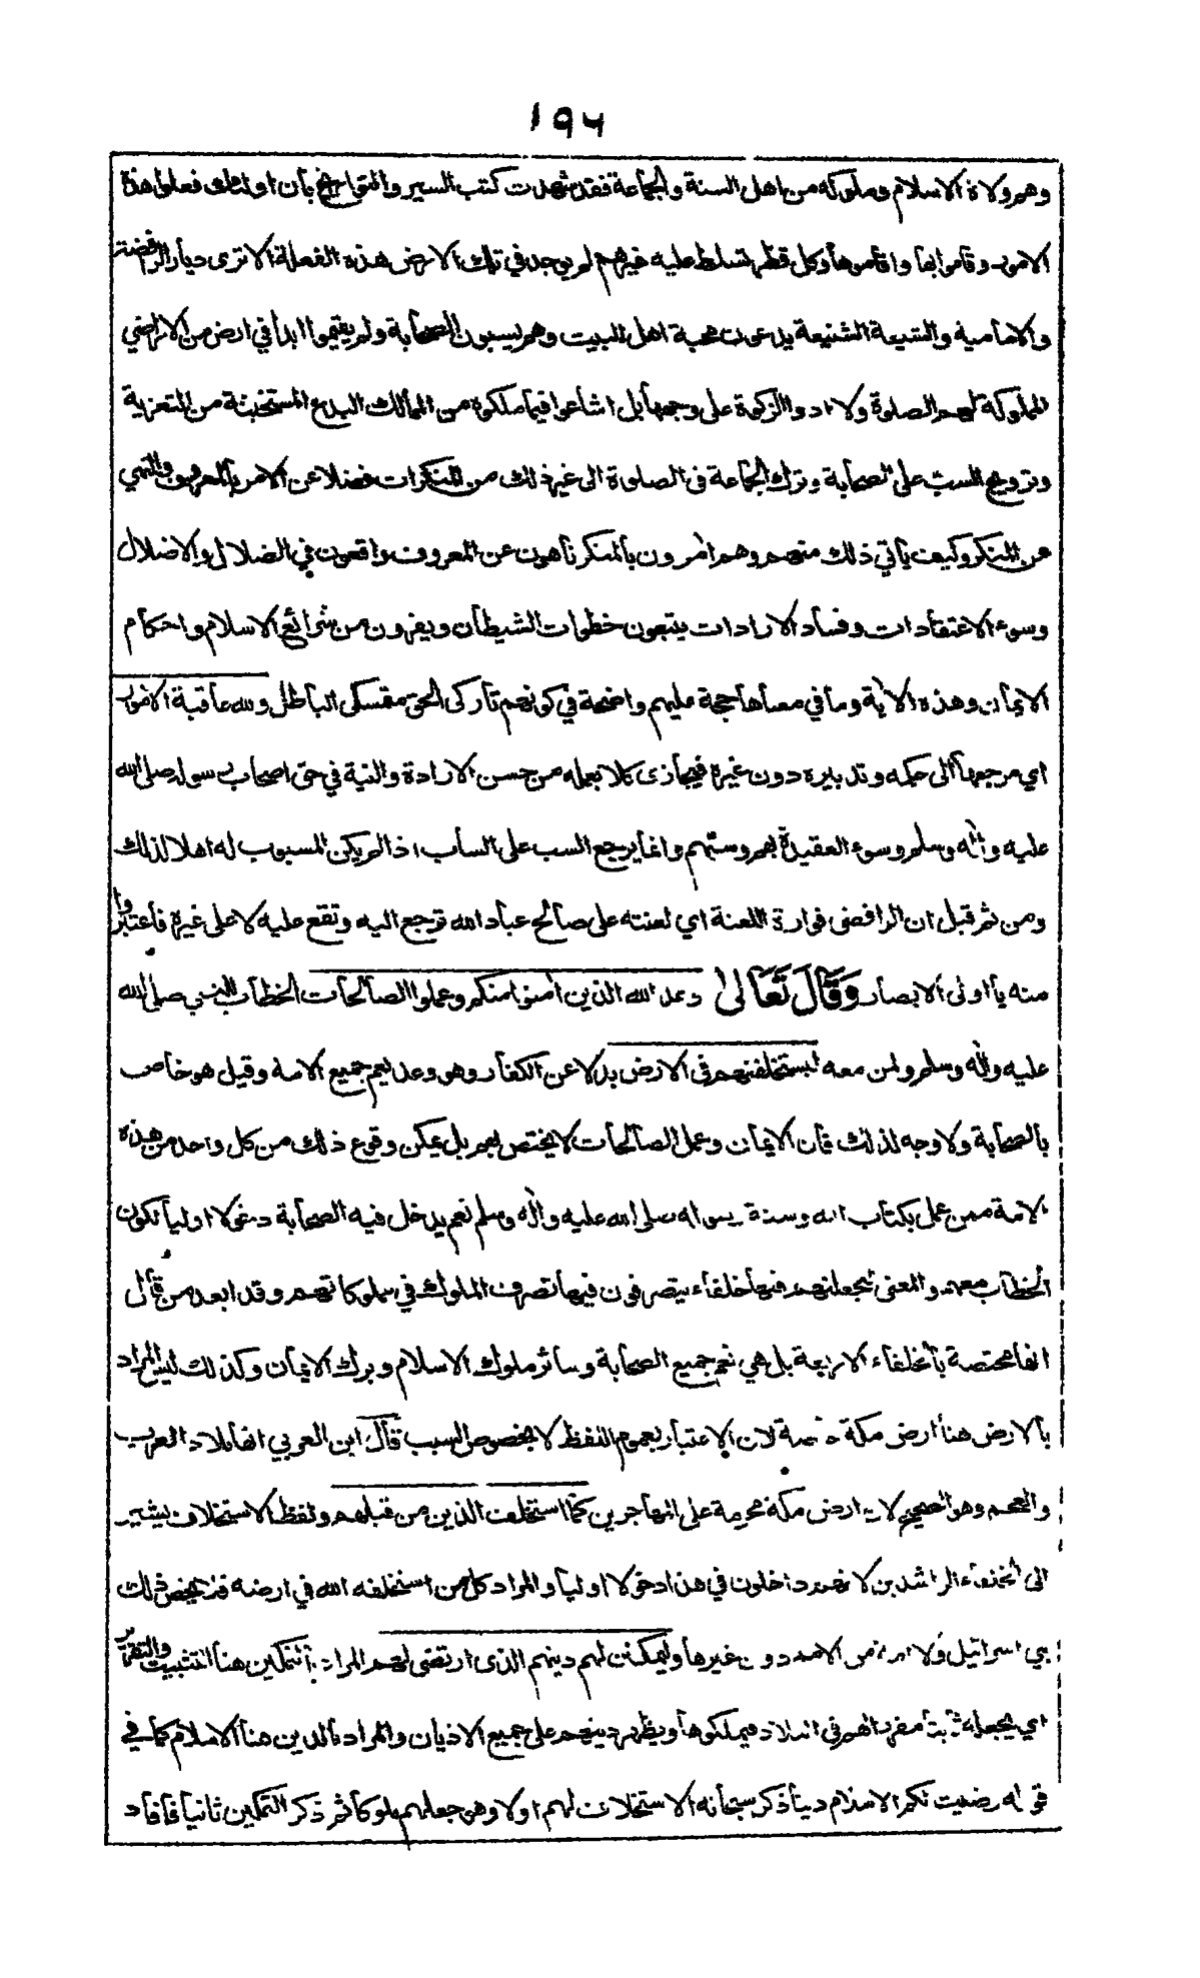 ١٩٦
وهم ولاة الاسلام وملوكه من اهل السنة والجماعة فقد شهدت كتب السير والتواريخ بأن اولئك فعلوا هذة
الامور وقاموا بها واقاموها وكل قطر تسلط عليه غيرهم لم يوجد في تلك الارض هذه الفعلة الا ترى ديار الرافضة
والامامية والشيعة الشنيعة يدعون محبة اهل البيت وهم يسبون الصحابة ولم يقيموا ابدا في ارض من الاراضي
المملوكة لهم الصلوة ولا ادوا الزكوة على وجهها بل اشاعوا فيما ملكوه من الممالك البدع المستخبثة من التعزية
وترويج السب على الصحابة وترك الجماعة فى الصلوة الى غير ذلك من المنكرات فضلا عن الامر بالمعروف والنهي
عن المنكر وكيف يأتي ذلك منهم وهم امرون بالمنكر ناهون عن المعروف واقعون في الضلال والاضلال
وسوء الاعتقادات وفساد الارادات يتبعون خطوات الشيطان ويفرون من شرائع الاسلام واحكام
الايمان وهذه الأية وما في معناها حجة عليهم واضحة في كونهم تاركى الحق متمسكى الباطل ولله عاقبة الامور
اي مرجعها الى حكمه وتدبيره دون غيره فيجازى كلا بعمله من حسن الارادة والنية في حق اصحاب رسوله صلى الله
عليه وآله وسلم وسوء العقيدة بهم وسبهم وانما يرجع السب على الساب اذا لم يكن المسبوب له اهلا لذلك
ومن ثم قيل ان الرافضى فوارة اللعنة اي لعنته على صالح عباد الله ترجع اليه وتقع عليه لا على غيره فاعتبروا
منه يا اولى الابصار وَقَالَ تَعَالىٰ وعد الله الذين أمنوا منكم وعملوا الصالحات الخطاب للنبي صلى الله
عليه وآله وسلم ولمن معه ليستخلفنهم فى الارض بدلا عن الكفار وهو وعد يعم جميع الامة وقيل هو خاص
بالصحابة ولا وجه لذلك فان الايمان وعمل الصالحات لا يختص بهم بل يمكن وقوع ذلك من كل واحد من هذه
الامة ممن عمل بكتاب الله وسنة رسوله صلى الله عليه وآله وسلم نعم يدخل فيه الصحابة دخولا اوليا لكون
الخطاب معهم والمعنى ليجعلنهم فيها خلفاء يتصرفون فيها تصرف الملوك في مملوكاتهم وقد ابعد من قال
انها مختصة بالخلفاء الاربعة بل هي تعم جميع الصحابة وسائر ملوك الاسلام وبرك الايمان وكذلك ليس المراد
بالارض هنا ارض مكة خاصة لان الاعتبار بعموم اللفظ لا بخصوص السبب قال ابن العربي انها بلاد العرب
والعجم وهو الصحيح لان ارض مكة محرمة على المهاجرين كما استخلف الذين من قبلهم ولفظ الاستخلاف يشير
الى الخلفاء الراشدين لانهم داخلون في هذا دخولا اوليا والمراد كل من استخلفه الله في ارضه فلا يخص ذلك
ببي اسرائيل ولا امة من الامم دون غيرها وليمكنن لهم دينهم الذى ارتضى لهم المراد بالتمكين هنا التثبيت والتقرير
اي يجعله ثابتا مقررا لهم فى البلاد فيملكوها ويظهر دينهم على جميع الاديان والمراد بالدين هنا الاسلام كما في
قوله رضيت لكم الاسلام دينا ذكر سبحانه الاستخلاف لهم اولا وهى جعلهم ملوكا ثم ذكر التمكين ثانيا فأفاد